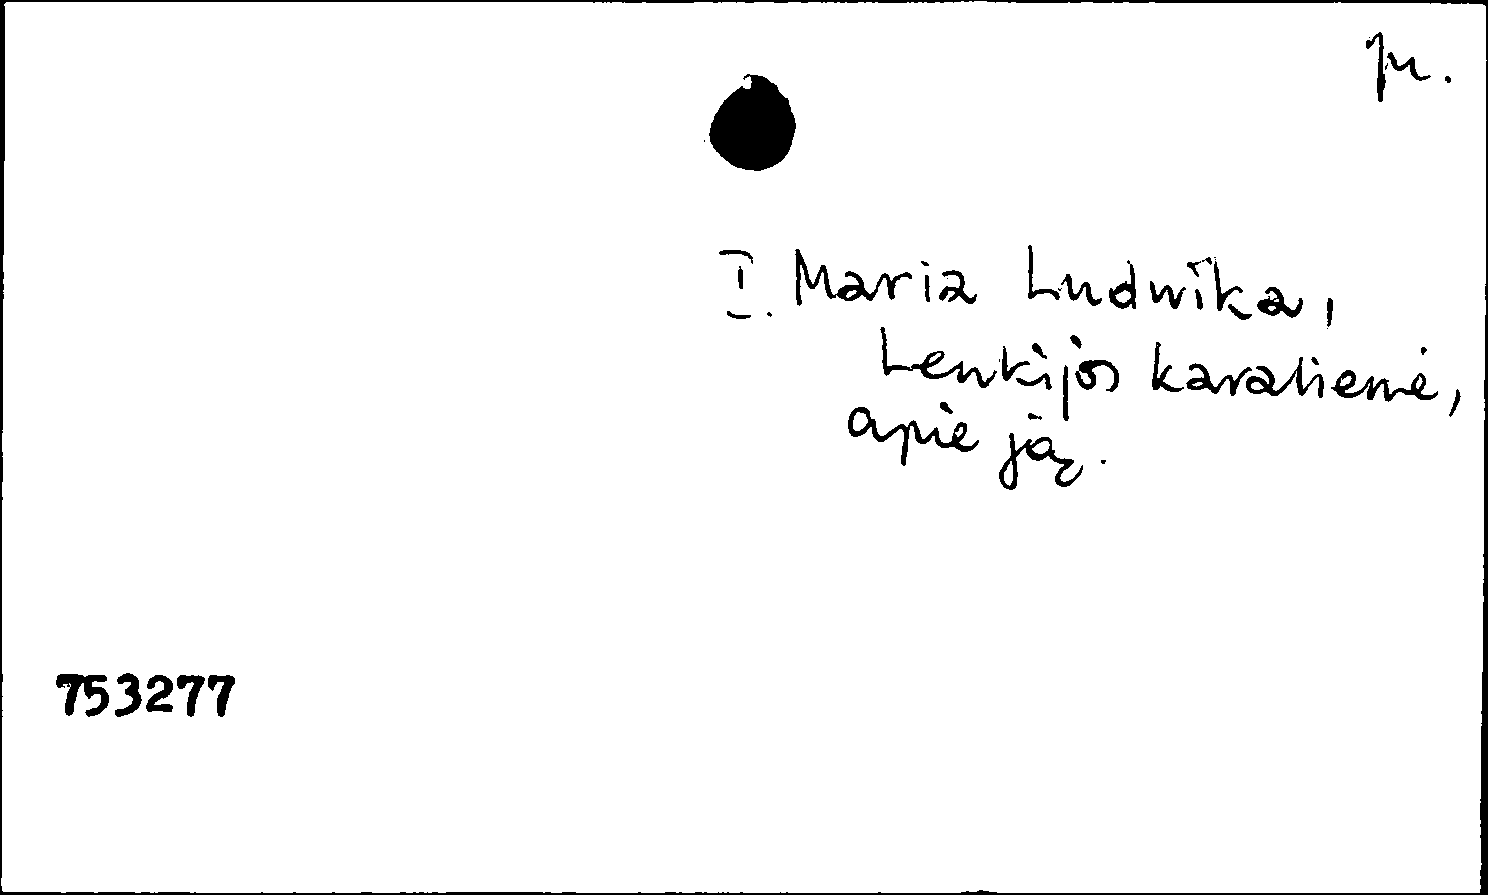 I. Maria Ludwika,
Lenkijos karalienė,
apie ją.
753277